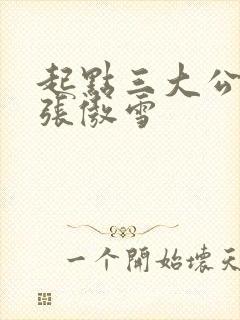 起點三大公
張傲雪
一个開始壞天